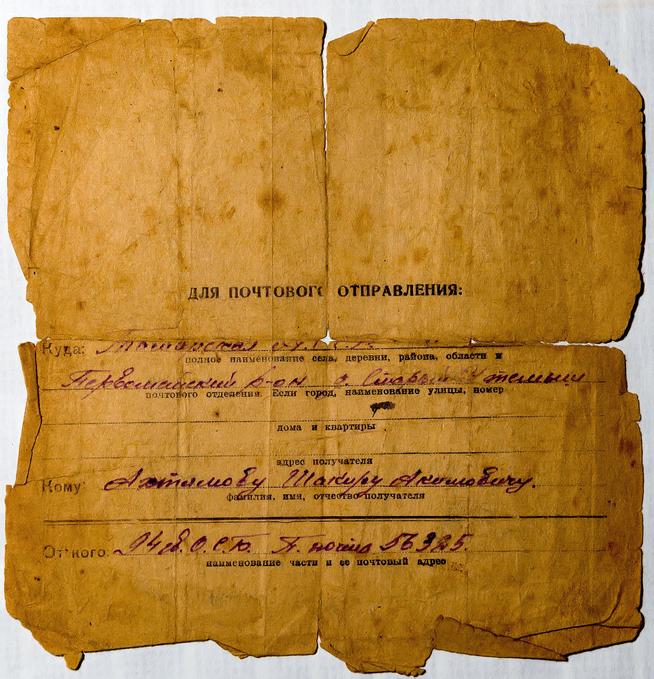 ДЛЯ ПОЧТОВОГО ОТПРАВЛЕНИЯ:
Куда:
полное наименование села, деревни, района, области и
Первомайский р-он с. Старый
почтового отделения. Если город, наименование улицы, номер
дома и квартиры
адрес получателя
Кому Ахтямову Шакиру Акимовичу.
фамилия, имя, отчество получателя
От кого: 94 П. почта 56325.
наименование части и ее почтовый адрес